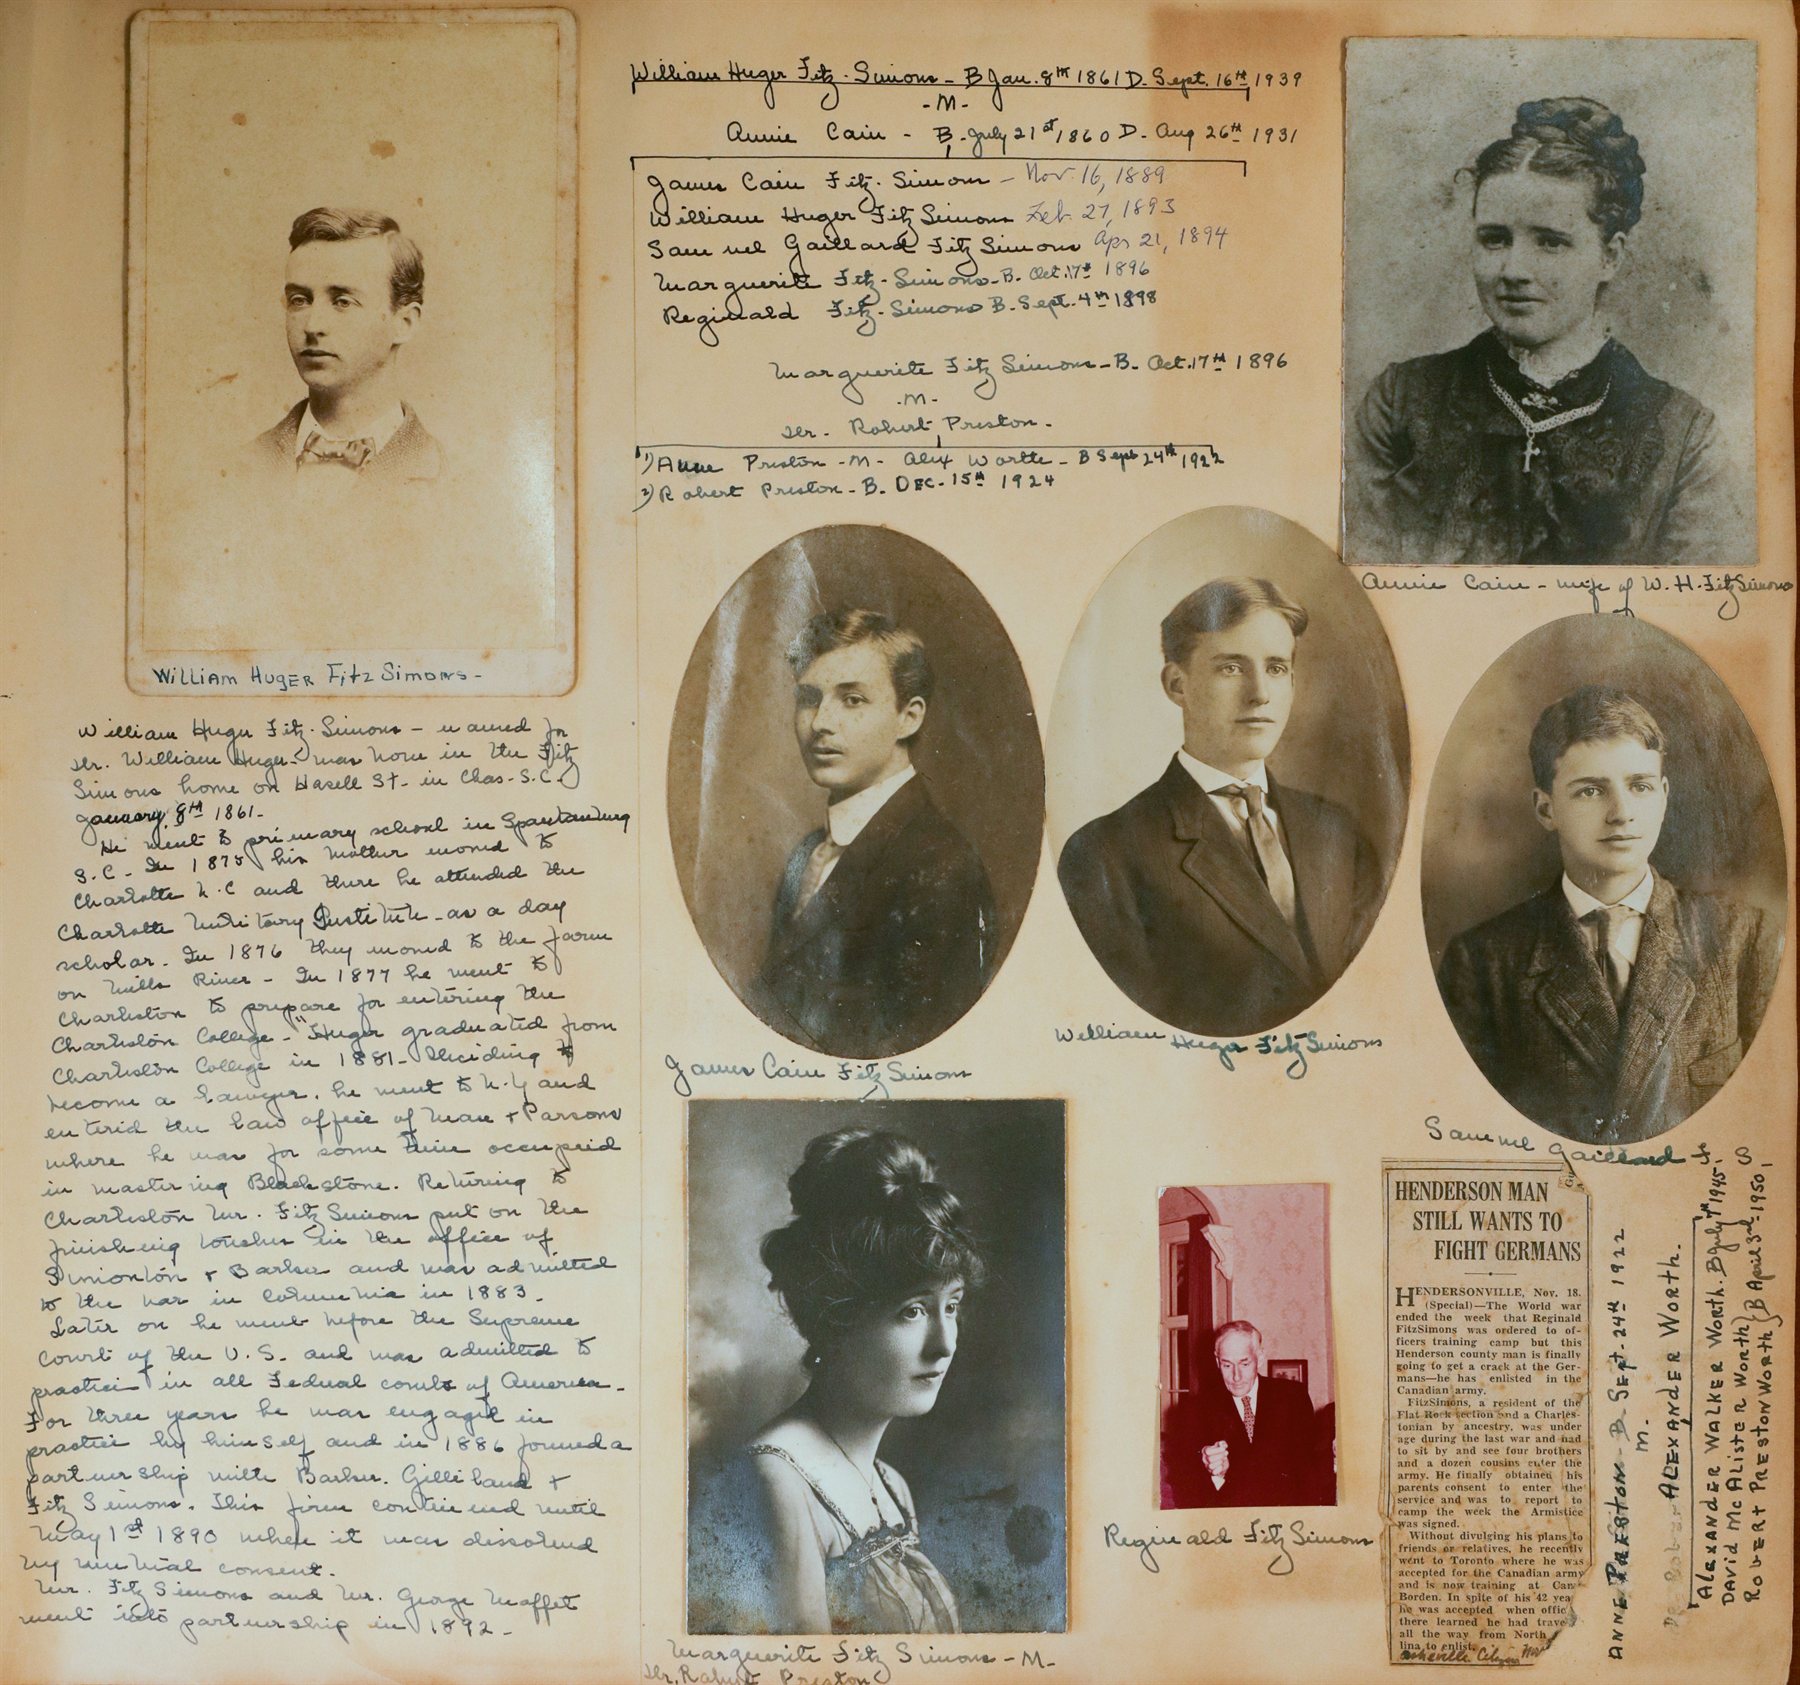 WILLIAM HUGER FITZ SIMONS -
William Huger Fitz-Simons - named for
Dr. William Huger - was born in the Fitz
Simons home on Hasell St. in Chas. S.C.
January 8th 1861.
He went to primary school in Spartanburg
S.C. - In 1875 his mother moved to
Charlotte N.C and there he attended the
Charlotte Military Institute - as a day
scholar. In 1876 they moved to the farm
on Mills River - In 1877 he went to
Charleston to prepare for entering the
Charleston College - "Huger graduated from
Charleston College in 1881 - Deciding to
become a lawyer, he went to N.Y and
entered the law office of Man + Parsons
where he was for some time occupied
in mastering Blackstone. Returning to
Charleston Mr. Fitz Simons put on the
finishing touches in the office of
Simonton + Barker and was admitted
to the bar in Columbia in 1883.
Later on he went before the Supreme
Court of the U.S. and was admitted to
practice in all Federal courts of America -
For three years he was engaged in
practice by himself and in 1886 formed a
partnership with Barker. Gilliland +
Fitz Simons. This firm continued until
May 1st 1890 when it was dissolved
by mutual consent.
Mr. Fitz Simons and Mr. George Moffet
went into partnership in 1892 -
William Huger Fitz-Simons - B Jan. 8th 1861 D. Sept. 16th 1939
- M -
Annie Cain - B. July 21st 1860 D. Aug 26th 1931
James Cain Fitz-Simons - Nov. 16, 1889
William Huger Fitz Simons Feb. 27, 1893
Samuel Gaillard Fitz Simons Apr 21, 1894
Marguerite Fitz-Simons - B. Oct. 17th 1896
Reginald Fitz-Simons B. Sept. 4th 1898
Marguerite Fitz Simons - B. Oct. 17th 1896
- M -
Dr. Robert Preston -
1) Anne Preston - M - Alex Worth - B Sept 24th 1922
2) Robert Preston - B. DEC. 15th 1924
Annie Cain - wife of W. H. Fitz Simons
James Cain Fitz Simons
William Huger Fitz Simons
Samuel Gaillard F. S
Marguerite Fitz Simons - M -
Dr. Robert Preston
Reginald Fitz Simons
HENDERSON MAN
STILL WANTS TO
FIGHT GERMANS
HENDERSONVILLE, Nov. 18.
(Special)—The World war
ended the week that Reginald
FitzSimons was ordered to of-
ficers training camp but this
Henderson county man is finally
going to get a crack at the Ger-
mans—he has enlisted in the
Canadian army.
FitzSimons, a resident of the
Flat Rock section and a Charles-
tonian by ancestry, was under
age during the last war and had
to sit by and see four brothers
and a dozen cousins enter the
army. He finally obtained his
parents consent to enter the
service and was to report to
camp the week the Armistice
was signed.
Without divulging his plans to
friends or relatives, he recently
went to Toronto where he was
accepted for the Canadian army
and is now training at Camp
Borden. In spite of his 42 yea
he was accepted when offic
there learned he had trave
all the way from North
lina to enlist.
Asheville Citizen Nov
ANNE PRESTON - B SEPT - 24th 1922
M.
ALEXANDER WORTH.
ALEXANDER WALKER WORTH. B July 7th 1945 -
DAVID MCALISTER WORTH
ROBERT PRESTON WORTH } B APRIL 3rd - 1950,